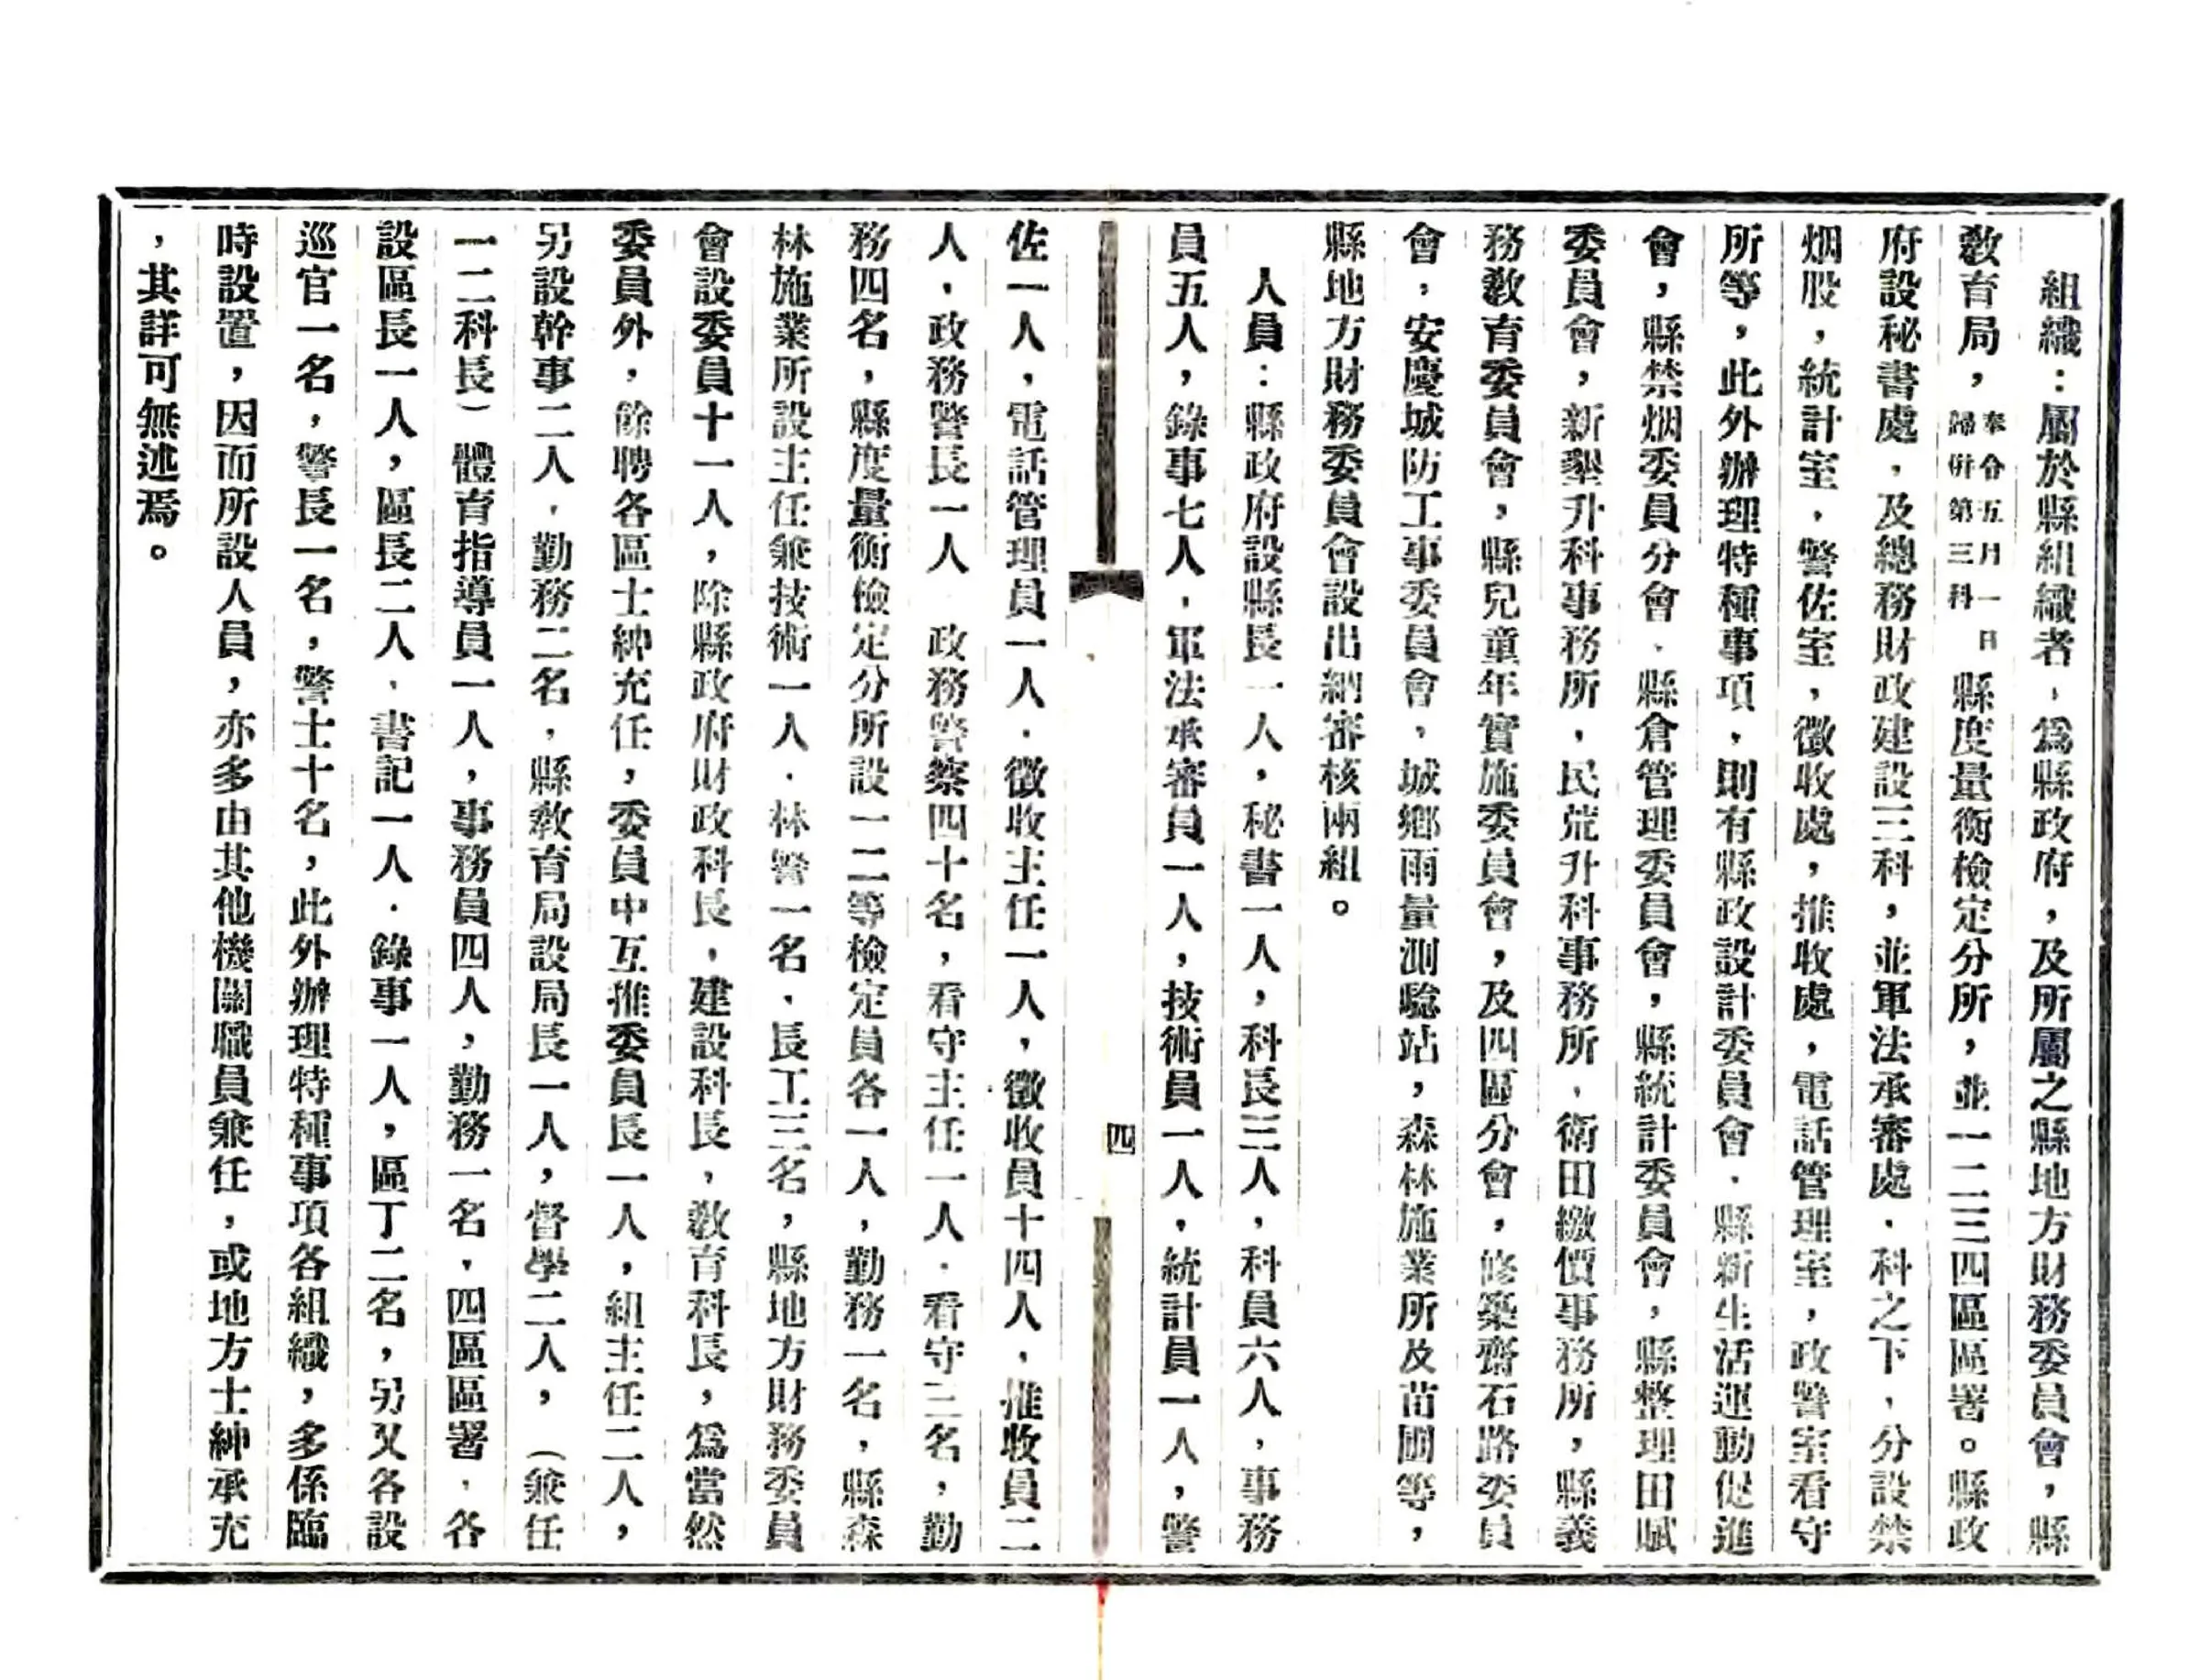 組織：屬於縣組織者，爲縣政府，及所屬之縣地方財務委員會，縣
敎育局，奉令五月一日歸併第三科縣度量衡檢定分所，並一二三四區區署。縣政
府設秘書處，及總務財政建設三科，並軍法承審處，科之下，分設禁
烟股，統計室，警佐室，徵收處，推收處，電話管理室，政警室看守
所等，此外辦理特種事項，則有縣政設計委員會，縣新生活運動促進
會，縣禁烟委員分會，縣倉管理委員會，縣統計委員會，縣整理田賦
委員會，新墾升科事務所，民荒升科事務所，衛田繳價事務所，縣義
務敎育委員會，縣兒童年實施委員會，及四區分會，修築齋石路委員
會，安慶城防工事委員會，城鄉雨量測騐站，森林施業所及苗圃等，
縣地方財務委員會設出納審核兩組。
人員：縣政府設縣長一人，秘書一人，科長三人，科員六人，事務
員五人，錄事七人，軍法承審員一人，技術員一人，統計員一人，警
四
佐一人，電話管理員一人，徵收主任一人，徵收員十四人，推收員二
人，政務警長一人　政務警察四十名，看守主任一人，看守三名，勤
務四名，縣度量衡檢定分所設一二等檢定員各一人，勤務一名，縣森
林施業所設主任兼技術一人，林警一名，長工三名，縣地方財務委員
會設委員十一人，除縣政府財政科長，建設科長，敎育科長，爲當然
委員外，餘聘各區士紳充任，委員中互推委員長一人，組主任二人，
另設幹事二人，勤務二名，縣敎育局設局長一人，督學二人，（兼任
一二科長）體育指導員一人，事務員四人，勤務一名，四區區署，各
設區長一人，區長二人，書記一人，錄事一人，區丁二名，另又各設
巡官一名，警長一名，警士十名，此外辦理特種事項各組織，多係臨
時設置，因而所設人員，亦多由其他機關職員兼任，或地方士紳承充
，其詳可無述焉。